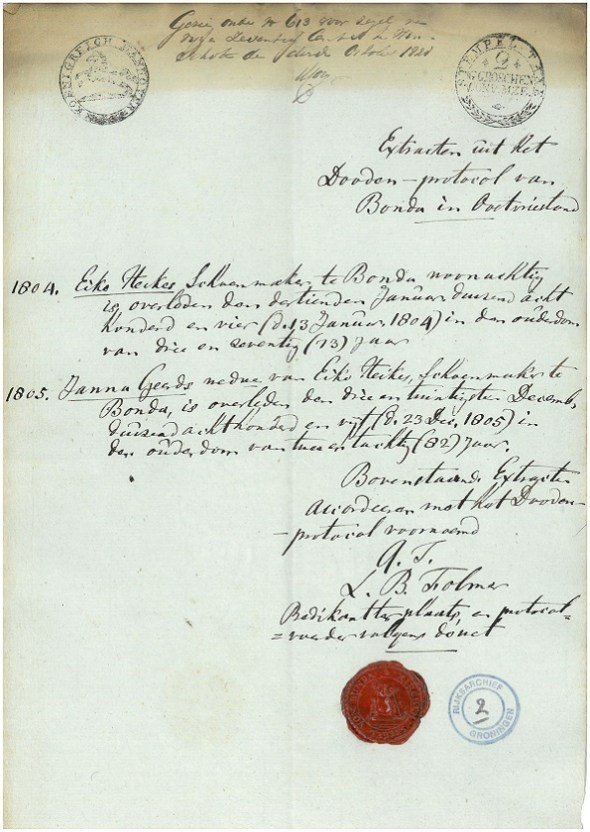 Gezien onder N 613 voor zegel
October 1828
KOENIGREICH HANNOVER
STEMPEL TAXE
2
G. GROSCHEN
CONV. MZE.
Extracten uit het
Dooden-protocol van
Bonda in Oostvriesland
1804. Eike Heikes Schoenmaker te Bonda
is overleden den dertienden Januar duizend acht
honderd en vier (d. 13 Januar 1804) in den ouderdom
van drie en zeventig (73) jaar
1805. Janna Geerds wedue van Eike Heikes, Schoenmaker te
Bonda, is overleden den drie en twintigsten Decemb.
duizend achthonderd en vijf (d. 23 Dec. 1805) in
den ouderdom van twee en tachtig (82) jaar.
Bovenstaande Extracten
accorderen met het Dooden-
-protocol voornoemd
q. T.
L. B. Folmer
Predikant ter plaats, en protocol=
=voerder volgens
RIJKSARCHIEF
2
GRONINGEN